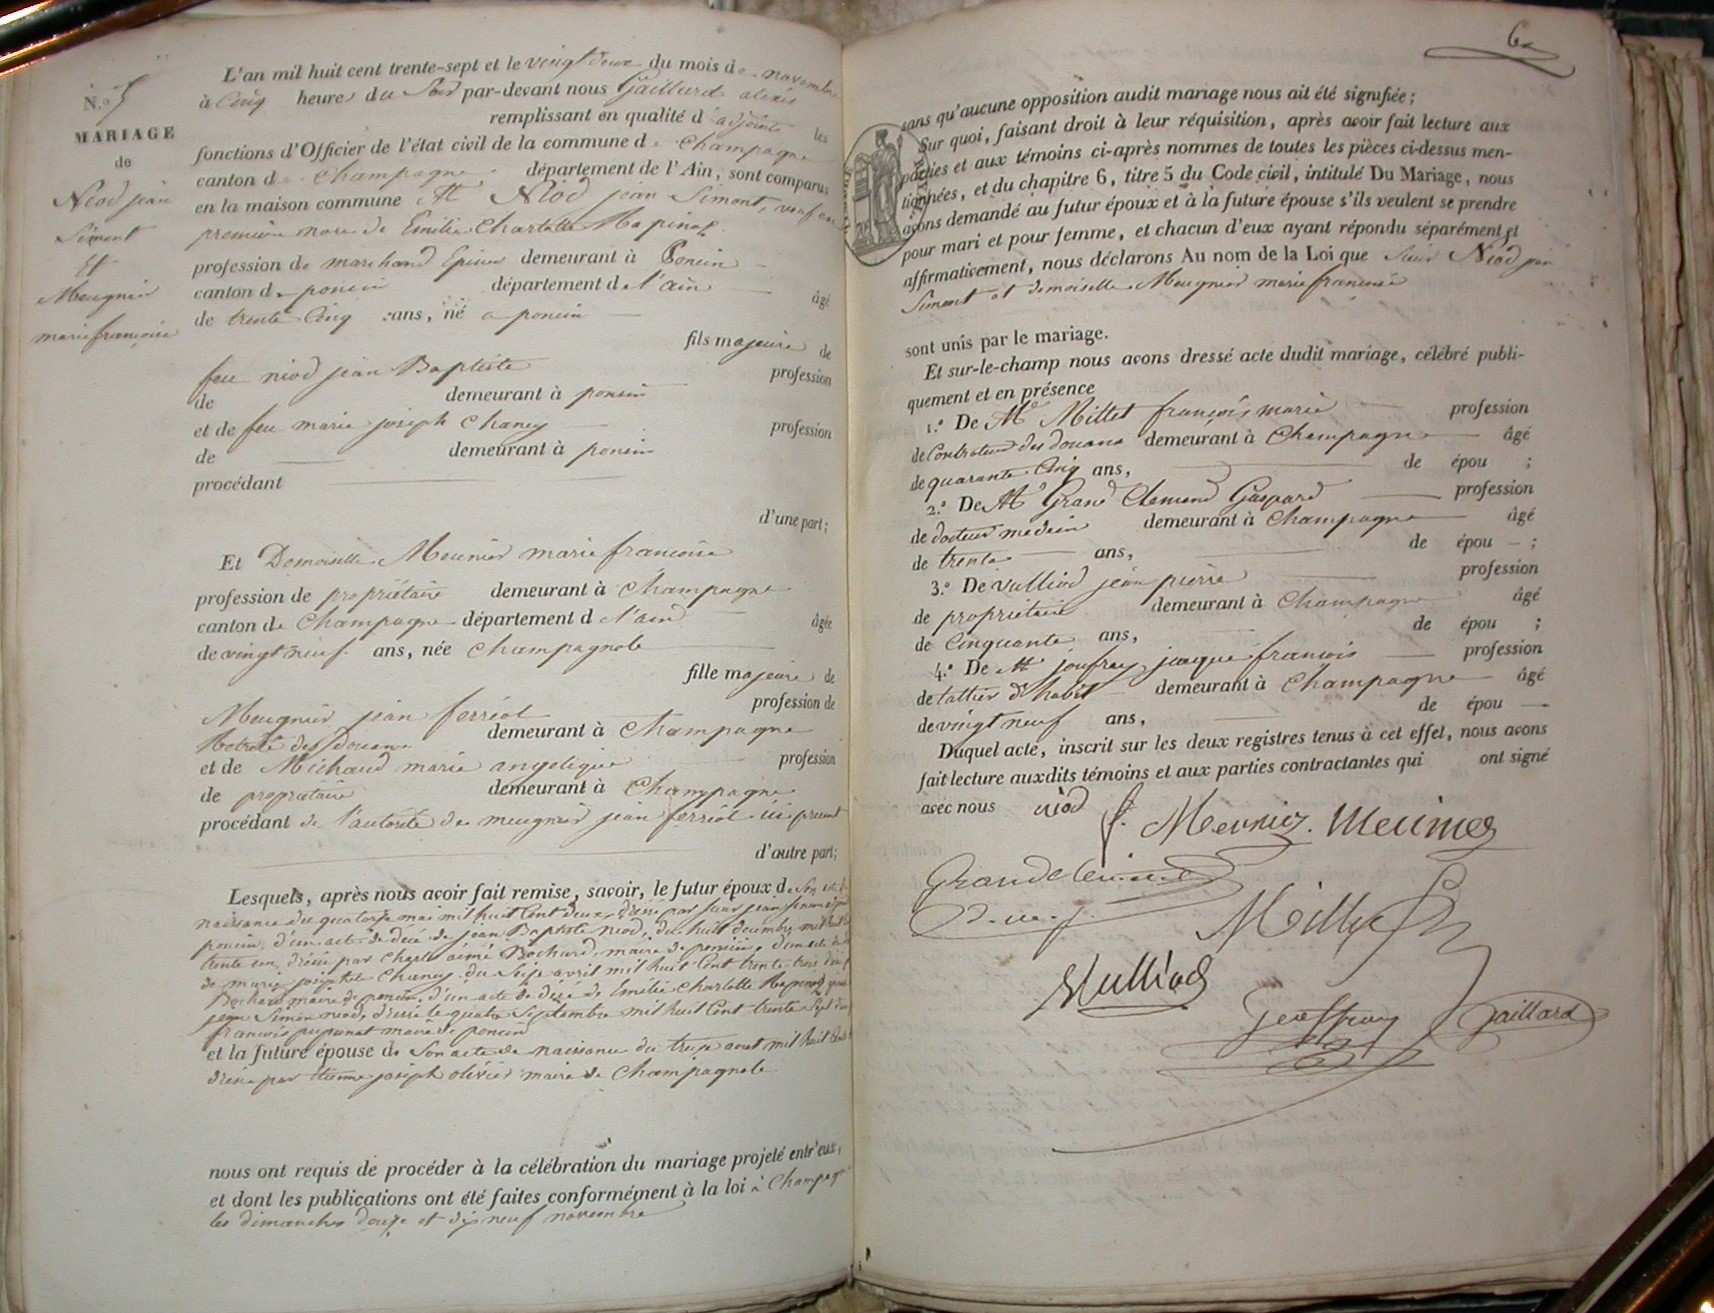 N.º 5
MARIAGE
de
Niod jean
Simont
Et
Meugnier
marie françoise
L'an mil huit cent trente-sept et le vingt deux du mois de novembre
à Cinq heures du Soir par-devant nous Gaillard alexis
remplissant en qualité d'adjoint les
fonctions d'Officier de l'état civil de la commune de Champagne
canton de Champagne département de l'Ain, sont comparus
en la maison commune Mr Niod jean Simont, veuf en
première noce de Emilie Charlotte Rapinat
profession de marchand Epicier demeurant à Poncin
canton de poncin département de l'ain âgé
de trente Cinq ans, né a poncin
fils majeure de
feu niod jean Baptiste profession
de demeurant à poncin
et de feu marie joseph Chaney profession
de demeurant à poncin
procédant
d'une part;
Et Demoiselle Meunier marie francoise
profession de propriétaire demeurant à Champagne
canton de Champagne département de l'ain âgée
de vingt neuf ans, née Champagnole
fille majeure de
Meugnier jean ferriol profession de
Retraité des douane demeurant à Champagne
et de Michaud marie angelique profession
de propriétaire demeurant à Champagne
procédant de l'autorité de meugnier jean ferriol ici présent
d'autre part;
Lesquels, après nous avoir fait remise, savoir, le futur époux de Son acte de
naissance du quatorze mai mil huit Cent deux, dressé par
poncin, d'un acte de décé de jean Baptiste niod, du huit decembre mil huit
trente un, dressé par Charle aimé Bochard, maire de poncin, d'un acte de
de marie josephte Chaney du Seize avril mil huit Cent trente trois
Bochard maire de poncin, d'un acte de décé de Emilie Charlotte Rapinat
jean Simon niod, dressé le quatre Septembre mil huit Cent trente Sept
francois maire de poncin
et la future épouse de Son acte de naissance du treize aout mil huit Cent
dressé par Etienne joseph olivier maire de Champagnole
nous ont requis de procéder à la célébration du mariage projeté entr'eux,
et dont les publications ont été faites conformément à la loi à Champagne
les dimanches douze et dix neuf novembre
6
sans qu'aucune opposition audit mariage nous ait été signifiée;
Sur quoi, faisant droit à leur réquisition, après avoir fait lecture aux
parties et aux témoins ci-après nommes de toutes les pièces ci-dessus men-
tionnées, et du chapitre 6, titre 5 du Code civil, intitulé Du Mariage, nous
avons demandé au futur époux et à la future épouse s'ils veulent se prendre
pour mari et pour femme, et chacun d'eux ayant répondu séparément et
affirmativement, nous déclarons Au nom de la Loi que Sieur Niod jean
Simont et demoiselle Meugnier marie francoise
sont unis par le mariage.
Et sur-le-champ nous avons dressé acte dudit mariage, célébré publi-
quement et en présence
1.º De Mr Millet françois marie profession
de Controleur des douane demeurant à Champagne âgé
de quarante Cinq ans, de épou ;
2.º De Mr Grand Clemend Gaspard profession
de docteur medecin demeurant à Champagne âgé
de trente ans, de épou - ;
3.º De Vulliod jean pierre profession
de proprietaire demeurant à Champagne âgé
de Cinquante ans, de épou ;
4.º De Mr joufrey jacque francois profession
de tallier d'habit demeurant à Champagne âgé
de vingt neuf ans, de épou
Duquel acte, inscrit sur les deux registres tenus à cet effet, nous avons
fait lecture auxdits témoins et aux parties contractantes qui ont signé
avec nous niod f. Meunier. Meunier
Grandclement
D. m.
Millet
Vulliod
Geoffray
Gaillard